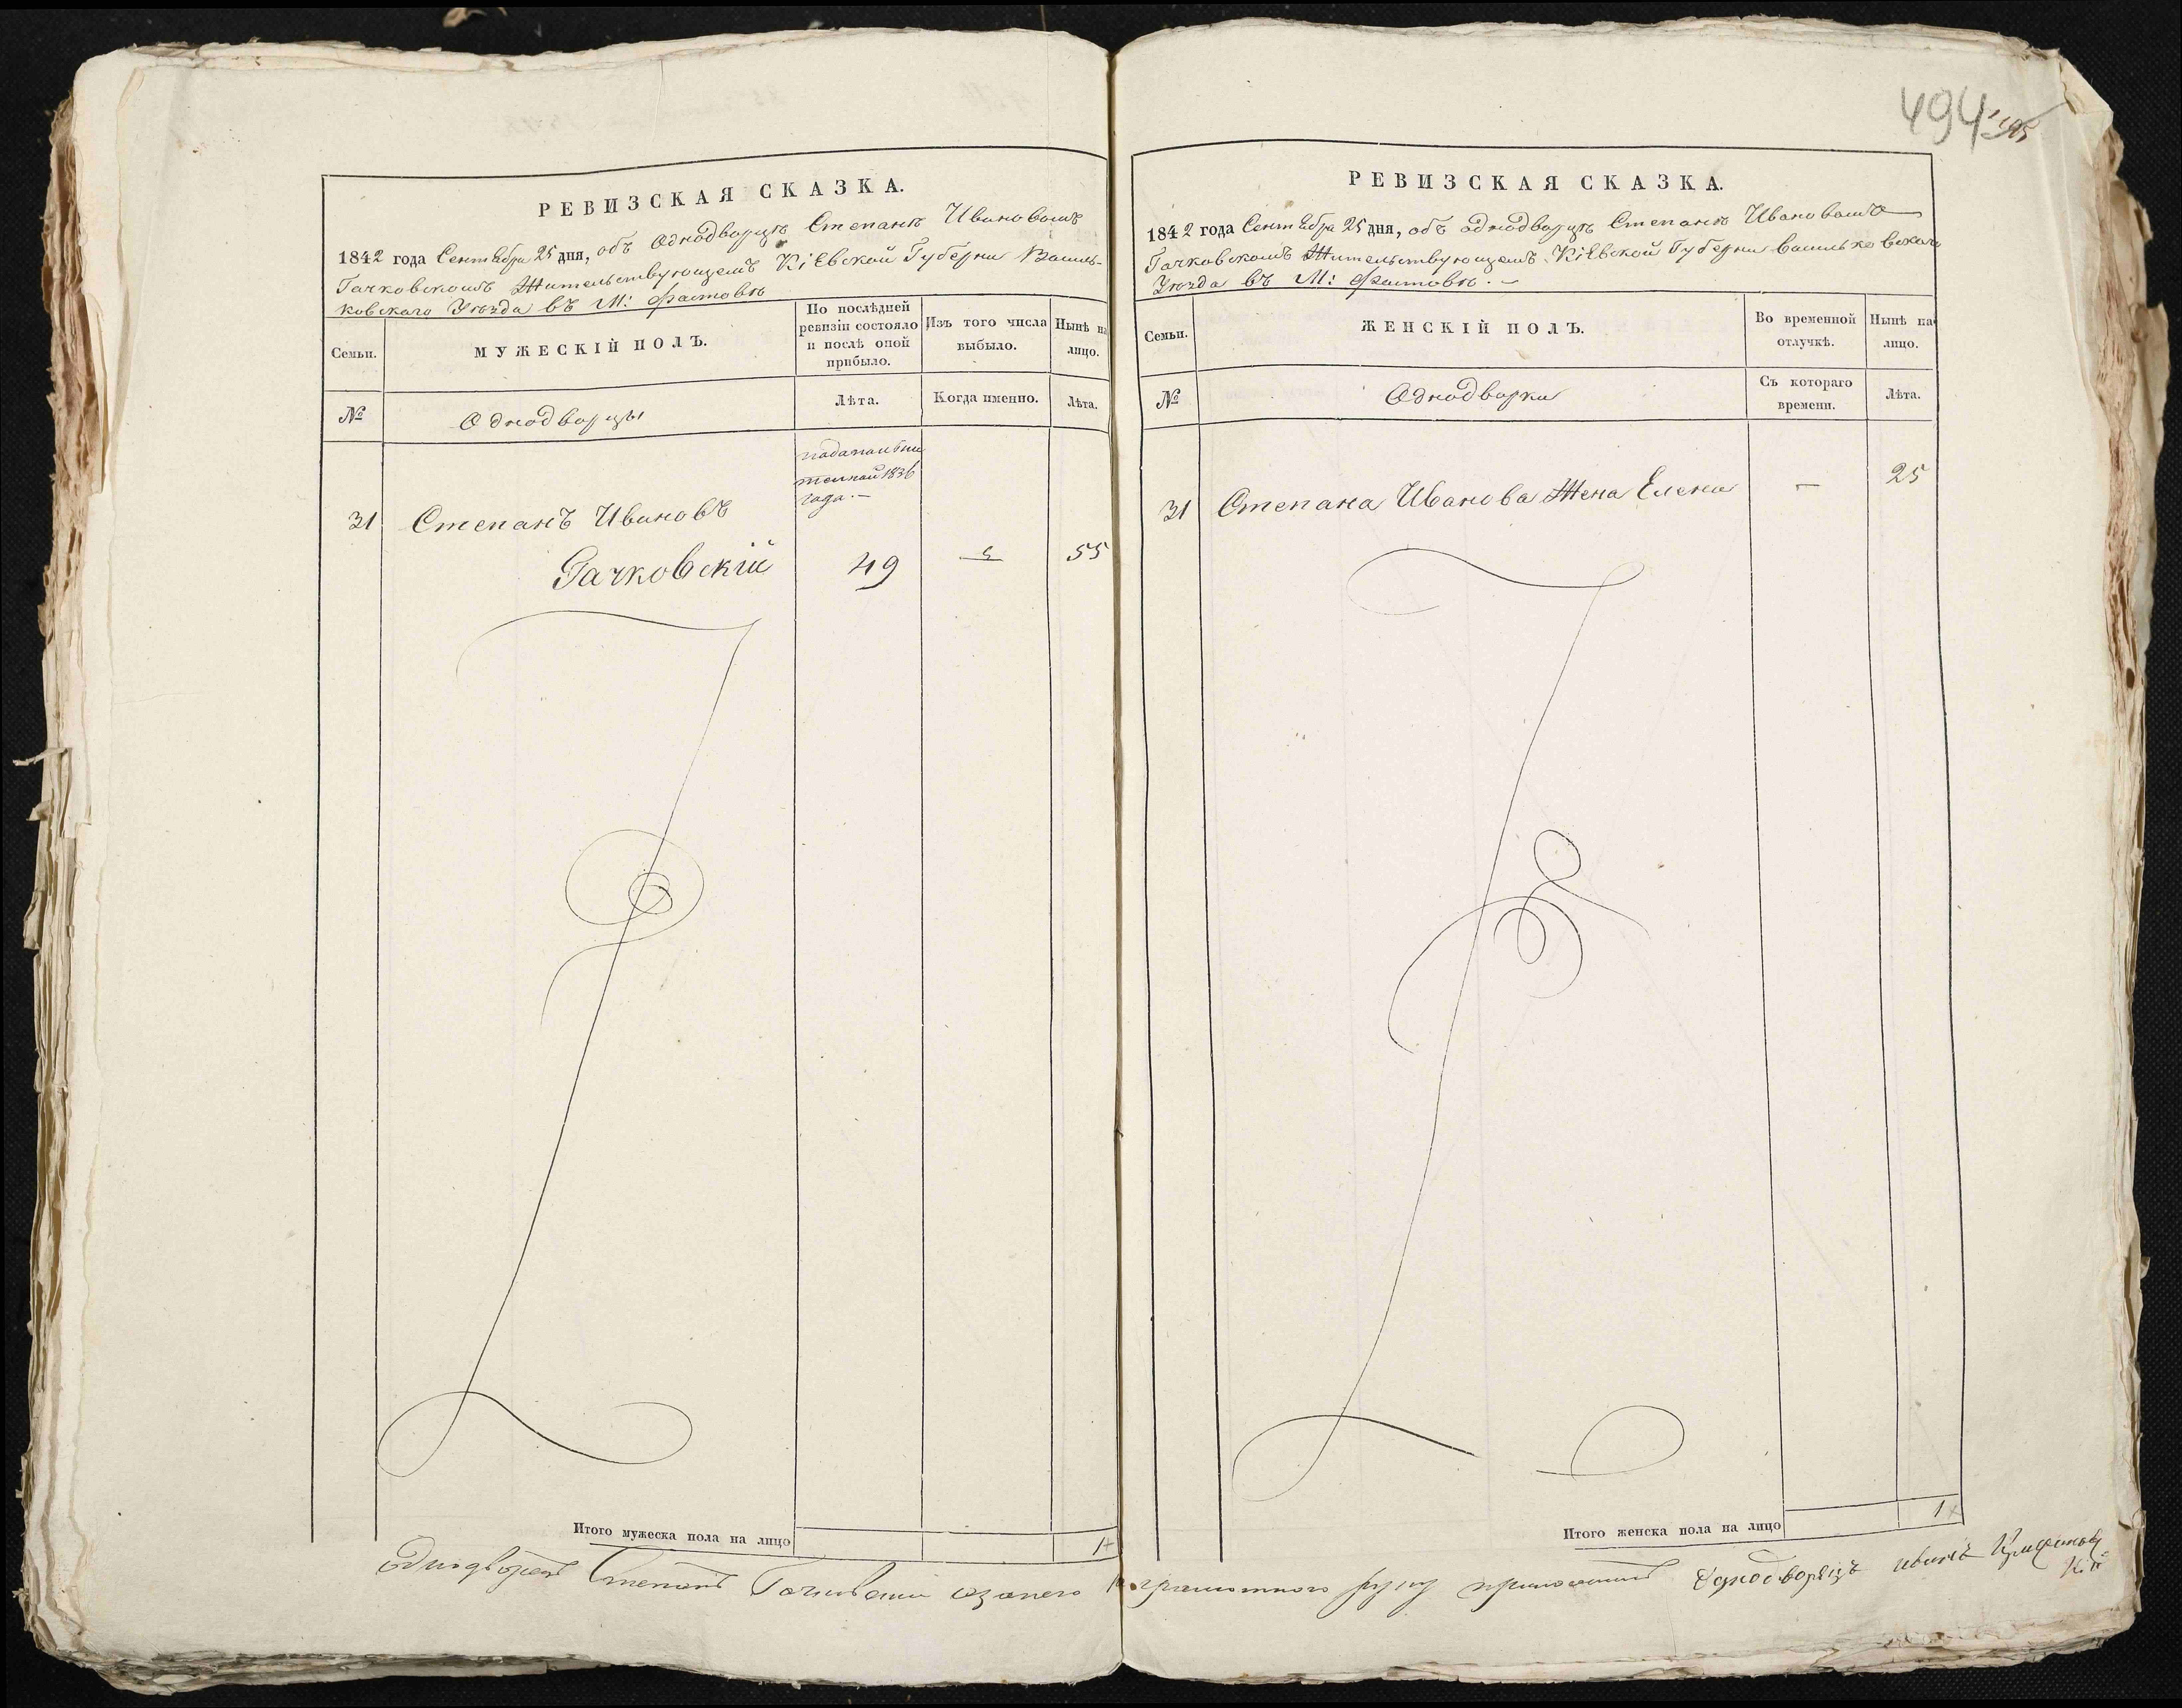 РЕВИЗСКАЯ СКАЗКА.
1842 года Сентября 25 дня, объ однодворцѣ Степанѣ Ивановомъ
Гачковскомъ Жительствующемъ Кіевской Губерни Василь-
ковскаго Уѣзда въ М: Фастовѣ
Семьи.
МУЖЕСКІЙ ПОЛЪ.
По послѣдней
ревизіи состояло
и послѣ оной
прибыло.
Изъ того числа
выбыло.
Нынѣ на
лицо.
№
Однодворцы
Лѣта.
Когда именно.
Лѣта.
1836
года.—
31 Степанъ Ивановъ
Гачковскій 49 55
Итого мужеска пола на лицо 1
однодворецъ Степанъ Гачковский
494
РЕВИЗСКАЯ СКАЗКА.
1842 года Сентября 25 дня, объ однодворцѣ Степанѣ Ивановомъ
Гачковскомъ Жительствующемъ Кіевской Губерни Васильковскаго
Уѣзда въ М: Фастовѣ.—
Семьи.
ЖЕНСКІЙ ПОЛЪ.
Во временной
отлучкѣ.
Нынѣ на
лицо.
№
Однодворки
Съ котораго
времени.
Лѣта.
31 Степана Иванова Жена Елена — 25
Итого женска пола на лицо 1
грамотного руку приложилъ Однодворецъ Иванъ